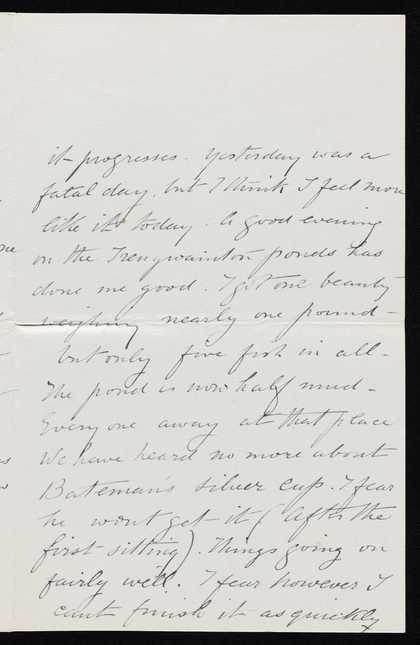 it progresses. Yesterday was a
fatal day. but I think I feel more
like it today. A good evening
on the Trengwainton ponds has
done me good. I got one beauty
weighing nearly one pound -
but only five fish in all -
The pond is now half mud -
Everyone away at that place
We have heard no more about
Bateman's silver cup. I fear
he wont get it (after the
first sitting). Things going on
fairly well. I fear however I
cant finish it as quickly